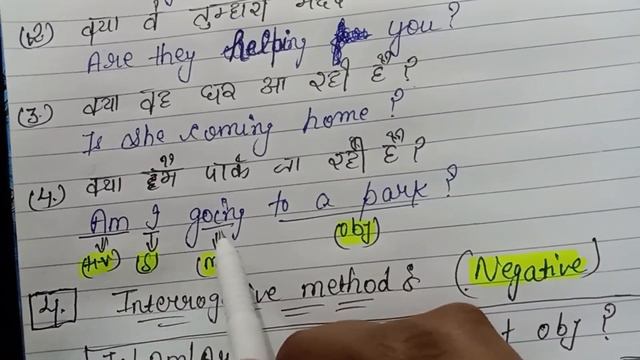 (2.) क्या वे तुम्हारी मदद
Are they helping you?
(3.) क्या वह घर आ रही है?
Is she coming home?
(4.) क्या पार्क जा रही है?
Am I going to a park?
(H.V) (S) (obj)
4. Interrogative method & (Negative)
obj ?